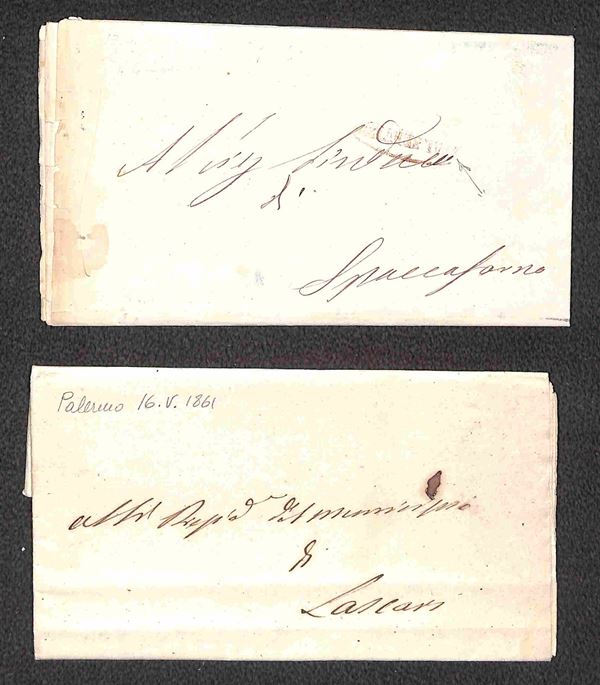 Al Sig Sindaco
di
Spaccaforno
Palermo 16.V.1861
del Municipio
di
Lascari